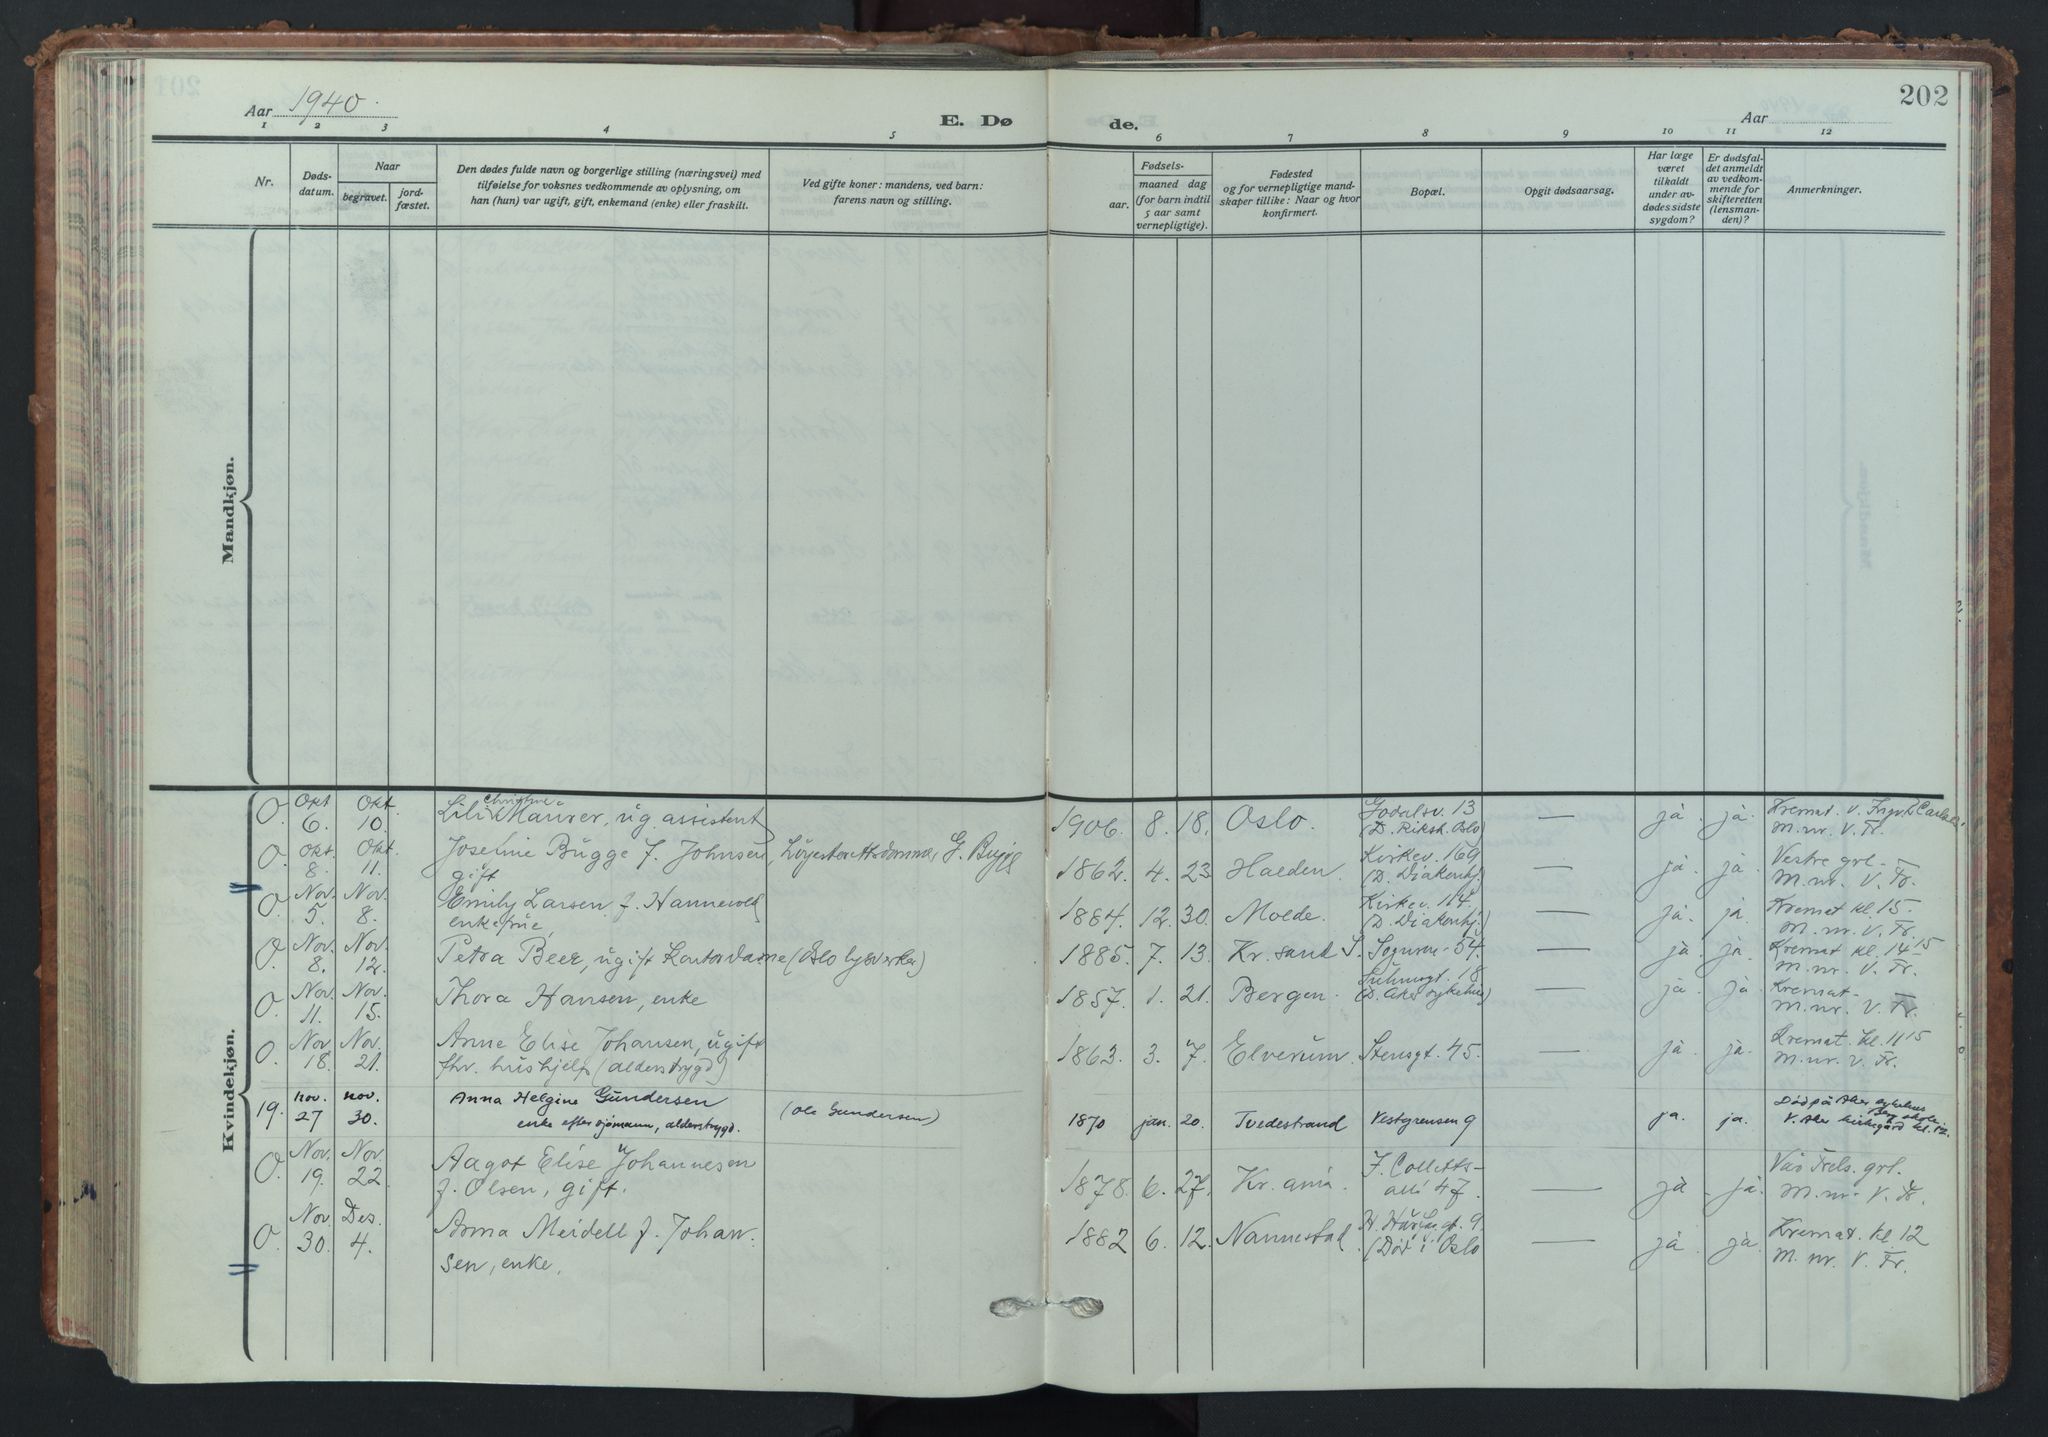 Aar 1940.
E. Dø
de.
Aar
202
1 2 3 4 5 6 7 8 9 10 11 12
Nr.
Døds-
datum.
Naar
begravet.
jord-
fæstet.
Den dødes fulde navn og borgerlige stilling (næringsvei) med
tilføielse for voksnes vedkommende av oplysning, om
han (hun) var ugift, gift, enkemand (enke) eller fraskilt.
Ved gifte koner: mandens, ved barn:
farens navn og stilling.
Fødsels-
aar.
maaned dag
(for barn indtil
5 aar samt
vernepligtige).
Fødested
og for vernepligtige mand-
skaper tillike: Naar og hvor
konfirmert.
Bopæl.
Opgit dødsaarsag.
Har læge
været
tilkaldt
under av-
dødes sidste
sygdom?
Er dødsfal-
det anmeldt
av vedkom-
mende for
skifteretten
(lensman-
den)?
Anmerkninger.
Mandkjøn.
Kvindekjøn.
O. Okt 6. Okt. 10. Lili Christine Maurer, ug. assistent 1906. 8. 18. Oslo. Godalsv. 13 (D. Riksh. Oslo) — ja. ja. Kremat. V.
M.nr. V. Fr.
O. Okt. 8. Okt. 11. Josefine Bugge f. Johnsen, gift Høyesterettsdommer G. Bugge 1862. 4. 23 Halden. Kirkev. 169 (D. Diakonhj.) — ja. ja. Vestre grl.
M.nr. V. Fr.
O. Nov. 5. Nov. 8. Emily Larsen f. Hannevold enkefrue, 1884. 12. 30. Molde. Kirkev. 114. (D. Diakonhj.) — ja. ja. Kremat kl. 15.
M.nr. V. Fr.
O. Nov. 8. Nov. 12. Petra Beer, ugift Kontordame (Oslo lysverker) 1885. 7. 13. Kr.sand S. Sognsv. 54. — ja. ja. Kremat. kl. 14 15
M.nr. V. Fr.
O. Nov. 11. Nov. 15. Thora Hansen, enke 1857. 1. 21. Bergen. Suhmsgt. 18 (D. Aker sykehus) — ja. ja. Kremat-
M.nr. V. Fr.
O. Nov 18. Nov. 21. Anne Elise Johansen, ugift
fhv. hushjelp (alderstrygd) 1863. 3. 7. Elverum. Stensgt. 45. — ja. ja. Kremat. kl. 11 15
M.nr. V. Fr.
19. nov. 27 nov. 30. Anna Helgine Gundersen
enke efter sjømann, alderstrygd. (Ole Gundersen) 1870 jan. 20. Tvedestrand Vestgrensen 9 ja. ja. Død på Aker sykehus
V. Aker kirkegård kl. 12.
O Nov. 19. Nov. 22. Aagot Elise Johannesen
f. Olsen, gift. 1878. 6. 27. Kr.ania. J. Colletts-
allé 47. — ja. ja. Vår Frels. grl.
M.nr. V. Fr.
O. Nov 30. Des. 4. Anna Meidell f. Johan-
sen, enke. 1882 6. 12. Nannestad. gt. 9.
(Død i Oslo — ja. ja. Kremat. kl 12
M. nr. V. Fr.